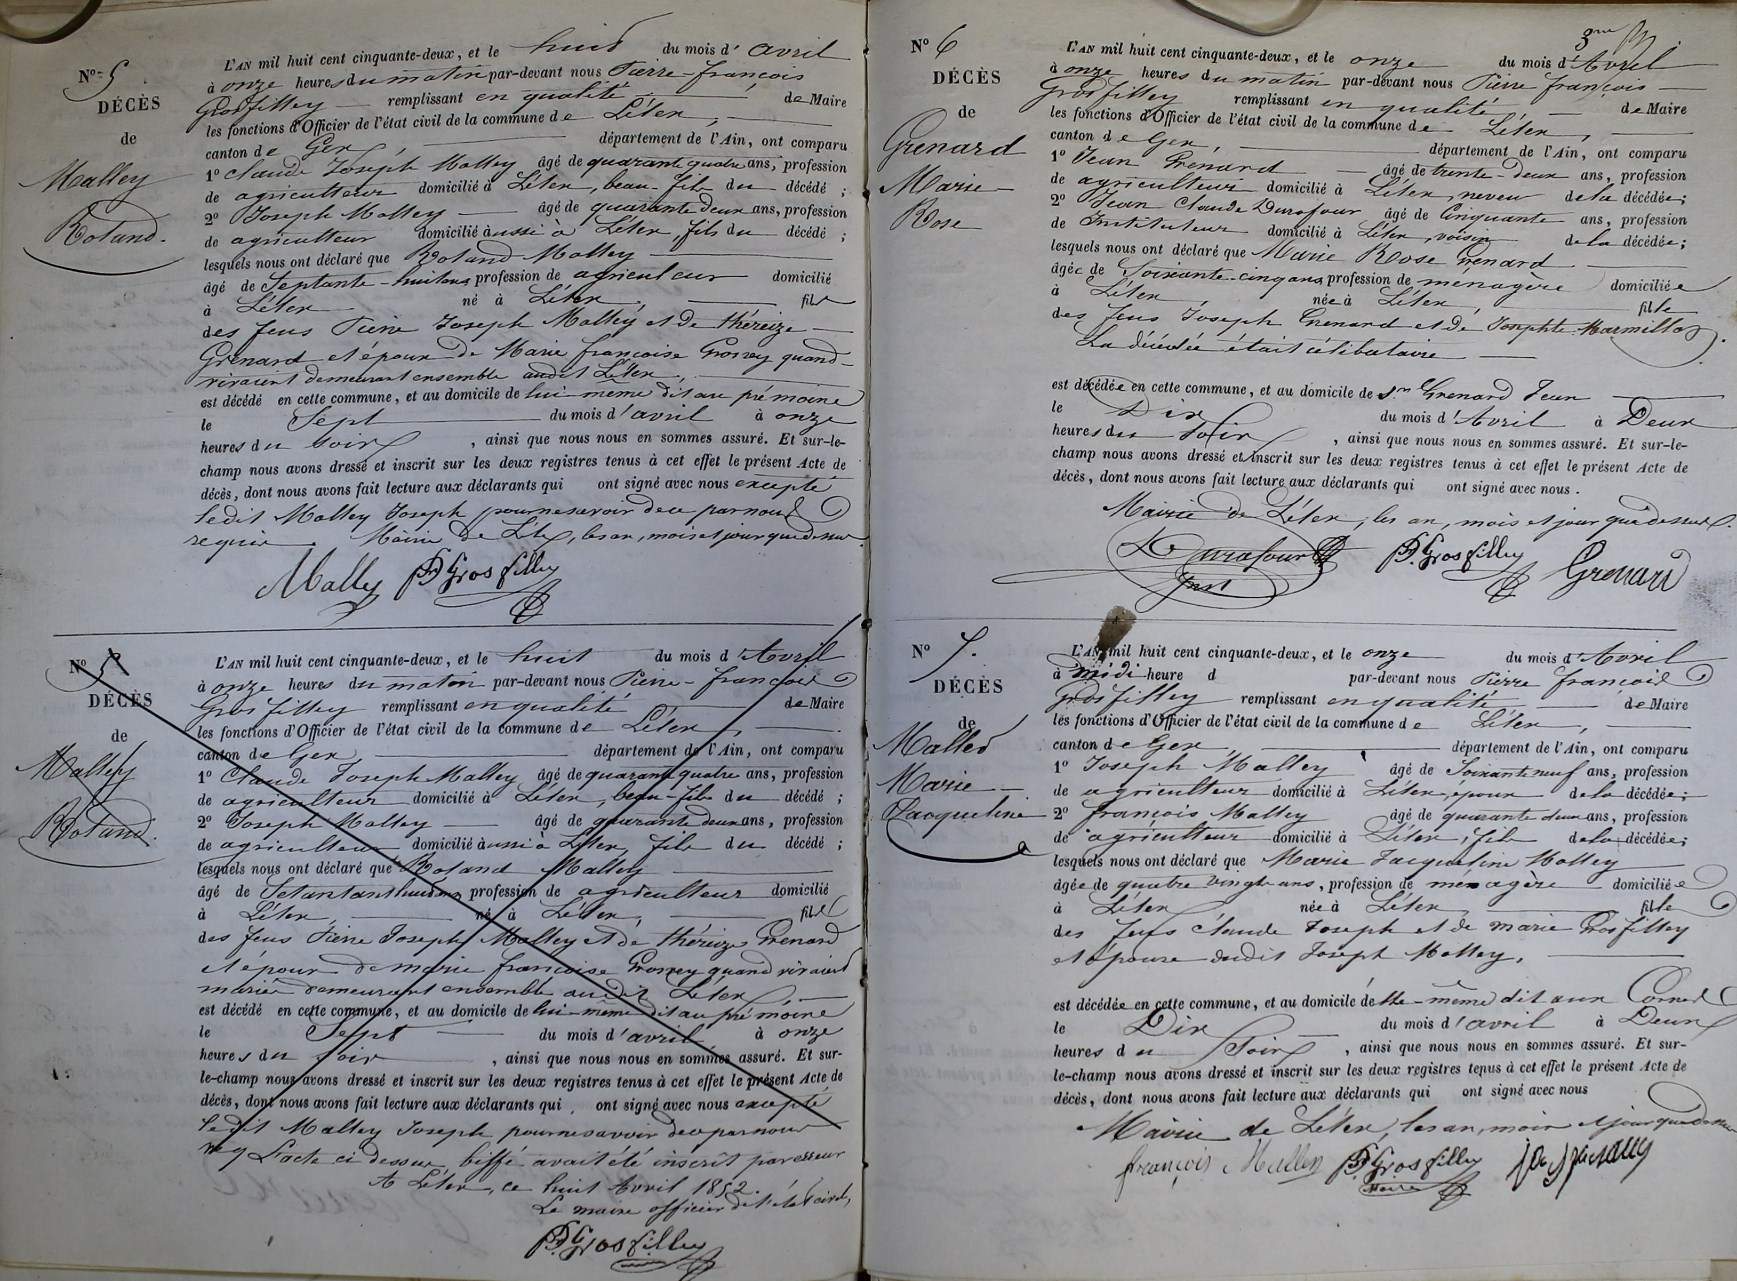 N° 5
DÉCÈS
de
Malley
Roland.
L'AN mil huit cent cinquante-deux, et le huit du mois d'avril
à onze heures du matin par-devant nous Pierre-françois
Grosfilley remplissant en qualité de Maire
les fonctions d'Officier de l'état civil de la commune de Lélex,
canton de Gex, département de l'Ain, ont comparu
1° Claude Joseph Malley âgé de quarante quatre ans, profession
de agriculteur domicilié à Lélex, beau-fils du décédé ;
2° Joseph Malley âgé de quarante deux ans, profession
de agriculteur domicilié aussi à Lélex, fils du décédé ;
lesquels nous ont déclaré que Roland Malley
âgé de Septante-huit ans, profession de agriculteur domicilié
à Lélex né à Lélex, fils
des feus Pierre Joseph Malley et de théreize
Grenard et époux de Marie françoise Grossey quand
vivaient demeurant ensemble audit Lélex,
est décédé en cette commune, et au domicile de lui-même dit au pré moine
le Sept du mois d'avril à onze
heures du Soir, ainsi que nous nous en sommes assuré. Et sur-le-
champ nous avons dressé et inscrit sur les deux registres tenus à cet effet le présent Acte de
décès, dont nous avons fait lecture aux déclarants qui ont signé avec nous excepté
ledit Malley Joseph pour ne savoir de ce par nous
requis. Mairie de Lélex, les an, mois et jour que dessus
Malley Grosfilley
N° 5
DÉCÈS
de
Malley
Roland.
L'AN mil huit cent cinquante-deux, et le huit du mois d'Avril
à onze heures du matin par-devant nous Pierre-françois
Grosfilley remplissant en qualité de Maire
les fonctions d'Officier de l'état civil de la commune de Lélex,
canton de Gex, département de l'Ain, ont comparu
1° Claude Joseph Malley âgé de quarante quatre ans, profession
de agriculteur domicilié à Lélex, beau-fils du décédé ;
2° Joseph Malley âgé de quarante deux ans, profession
de agriculteur domicilié aussi à Lélex, fils du décédé ;
lesquels nous ont déclaré que Roland Malley
âgé de ans, profession de agriculteur domicilié
à Lélex, né à Lélex, fils
des feus Pierre Joseph Malley et de théreize Grenard
et époux de marie françoise Grossey quand vivaient
mariés demeurant ensemble audit Lélex,
est décédé en cette commune, et au domicile de lui-même dit au pré moine
le Sept du mois d'avril à onze
heures du Soir, ainsi que nous nous en sommes assuré. Et sur-
le-champ nous avons dressé et inscrit sur les deux registres tenus à cet effet le présent Acte de
décès, dont nous avons fait lecture aux déclarants qui ont signé avec nous excepté
ledit Malley Joseph pour ne savoir de ce par nous
req L'acte ci dessus biffé avait été inscrit par erreur
A Lélex, ce huit Avril 1852.
Le maire officier de l'état civil,
Grosfilley
N° 6
DÉCÈS
de
Grenard
Marie
Rose
L'AN mil huit cent cinquante-deux, et le onze du mois d'Avril
à onze heures du matin par-devant nous Pierre françois
Grosfilley remplissant en qualité de Maire
les fonctions d'Officier de l'état civil de la commune de Lélex,
canton de Gex, département de l'Ain, ont comparu
1° Jean Grenard âgé de trente-deux ans, profession
de agriculteur domicilié à Lélex, neveu de la décédée;
2° Jean Claude Durafour âgé de Cinquante ans, profession
de Instituteur domicilié à Lélex, voisin de la décédée;
lesquels nous ont déclaré que Marie Rose Grenard
âgée de Soixante-cinq ans, profession de ménagère domiciliée
à Lélex, née à Lélex, fille
des feus Joseph Grenard et de Josephte Marmillos.
La décédée était célibataire
est décédée en cette commune, et au domicile de Sr. Grenard Jean
le Dix du mois d'Avril à Deux
heures du Soir, ainsi que nous nous en sommes assuré. Et sur-le-
champ nous avons dressé et inscrit sur les deux registres tenus à cet effet le présent Acte de
décès, dont nous avons fait lecture aux déclarants qui ont signé avec nous.
Mairie de Lélex, les an, mois et jour que dessus.
Durafour Grosfilley Grenard
Inst
N° 7.
DÉCÈS
de
Malley
Marie
Jacqueline
L'AN mil huit cent cinquante-deux, et le onze du mois d'Avril
à midi heure d par-devant nous Pierre françois
Grosfilley remplissant en qualité de Maire
les fonctions d'Officier de l'état civil de la commune de Lélex,
canton de Gex, département de l'Ain, ont comparu
1° Joseph Malley âgé de Soixante neuf ans, profession
de agriculteur domicilié à Lélex, époux de la décédée;
2° françois Malley âgé de quarante deux ans, profession
de agriculteur domicilié à Lélex, fils de la décédée;
lesquels nous ont déclaré que Marie Jacqueline Malley
âgée de quatre vingts ans, profession de ménagère domiciliée
à Lélex née à Lélex, fille
des feus Claude Joseph et de marie Grosfilley
et épouse dudit Joseph Malley,
est décédée en cette commune, et au domicile de elle-même dit aux
le Dix du mois d'avril à Deux
heures du Soir, ainsi que nous nous en sommes assuré. Et sur-
le-champ nous avons dressé et inscrit sur les deux registres tenus à cet effet le présent Acte de
décès, dont nous avons fait lecture aux déclarants qui ont signé avec nous
Mairie de Lélex, les an, mois et jour que dessus
françois Malley Grosfilley
Maire